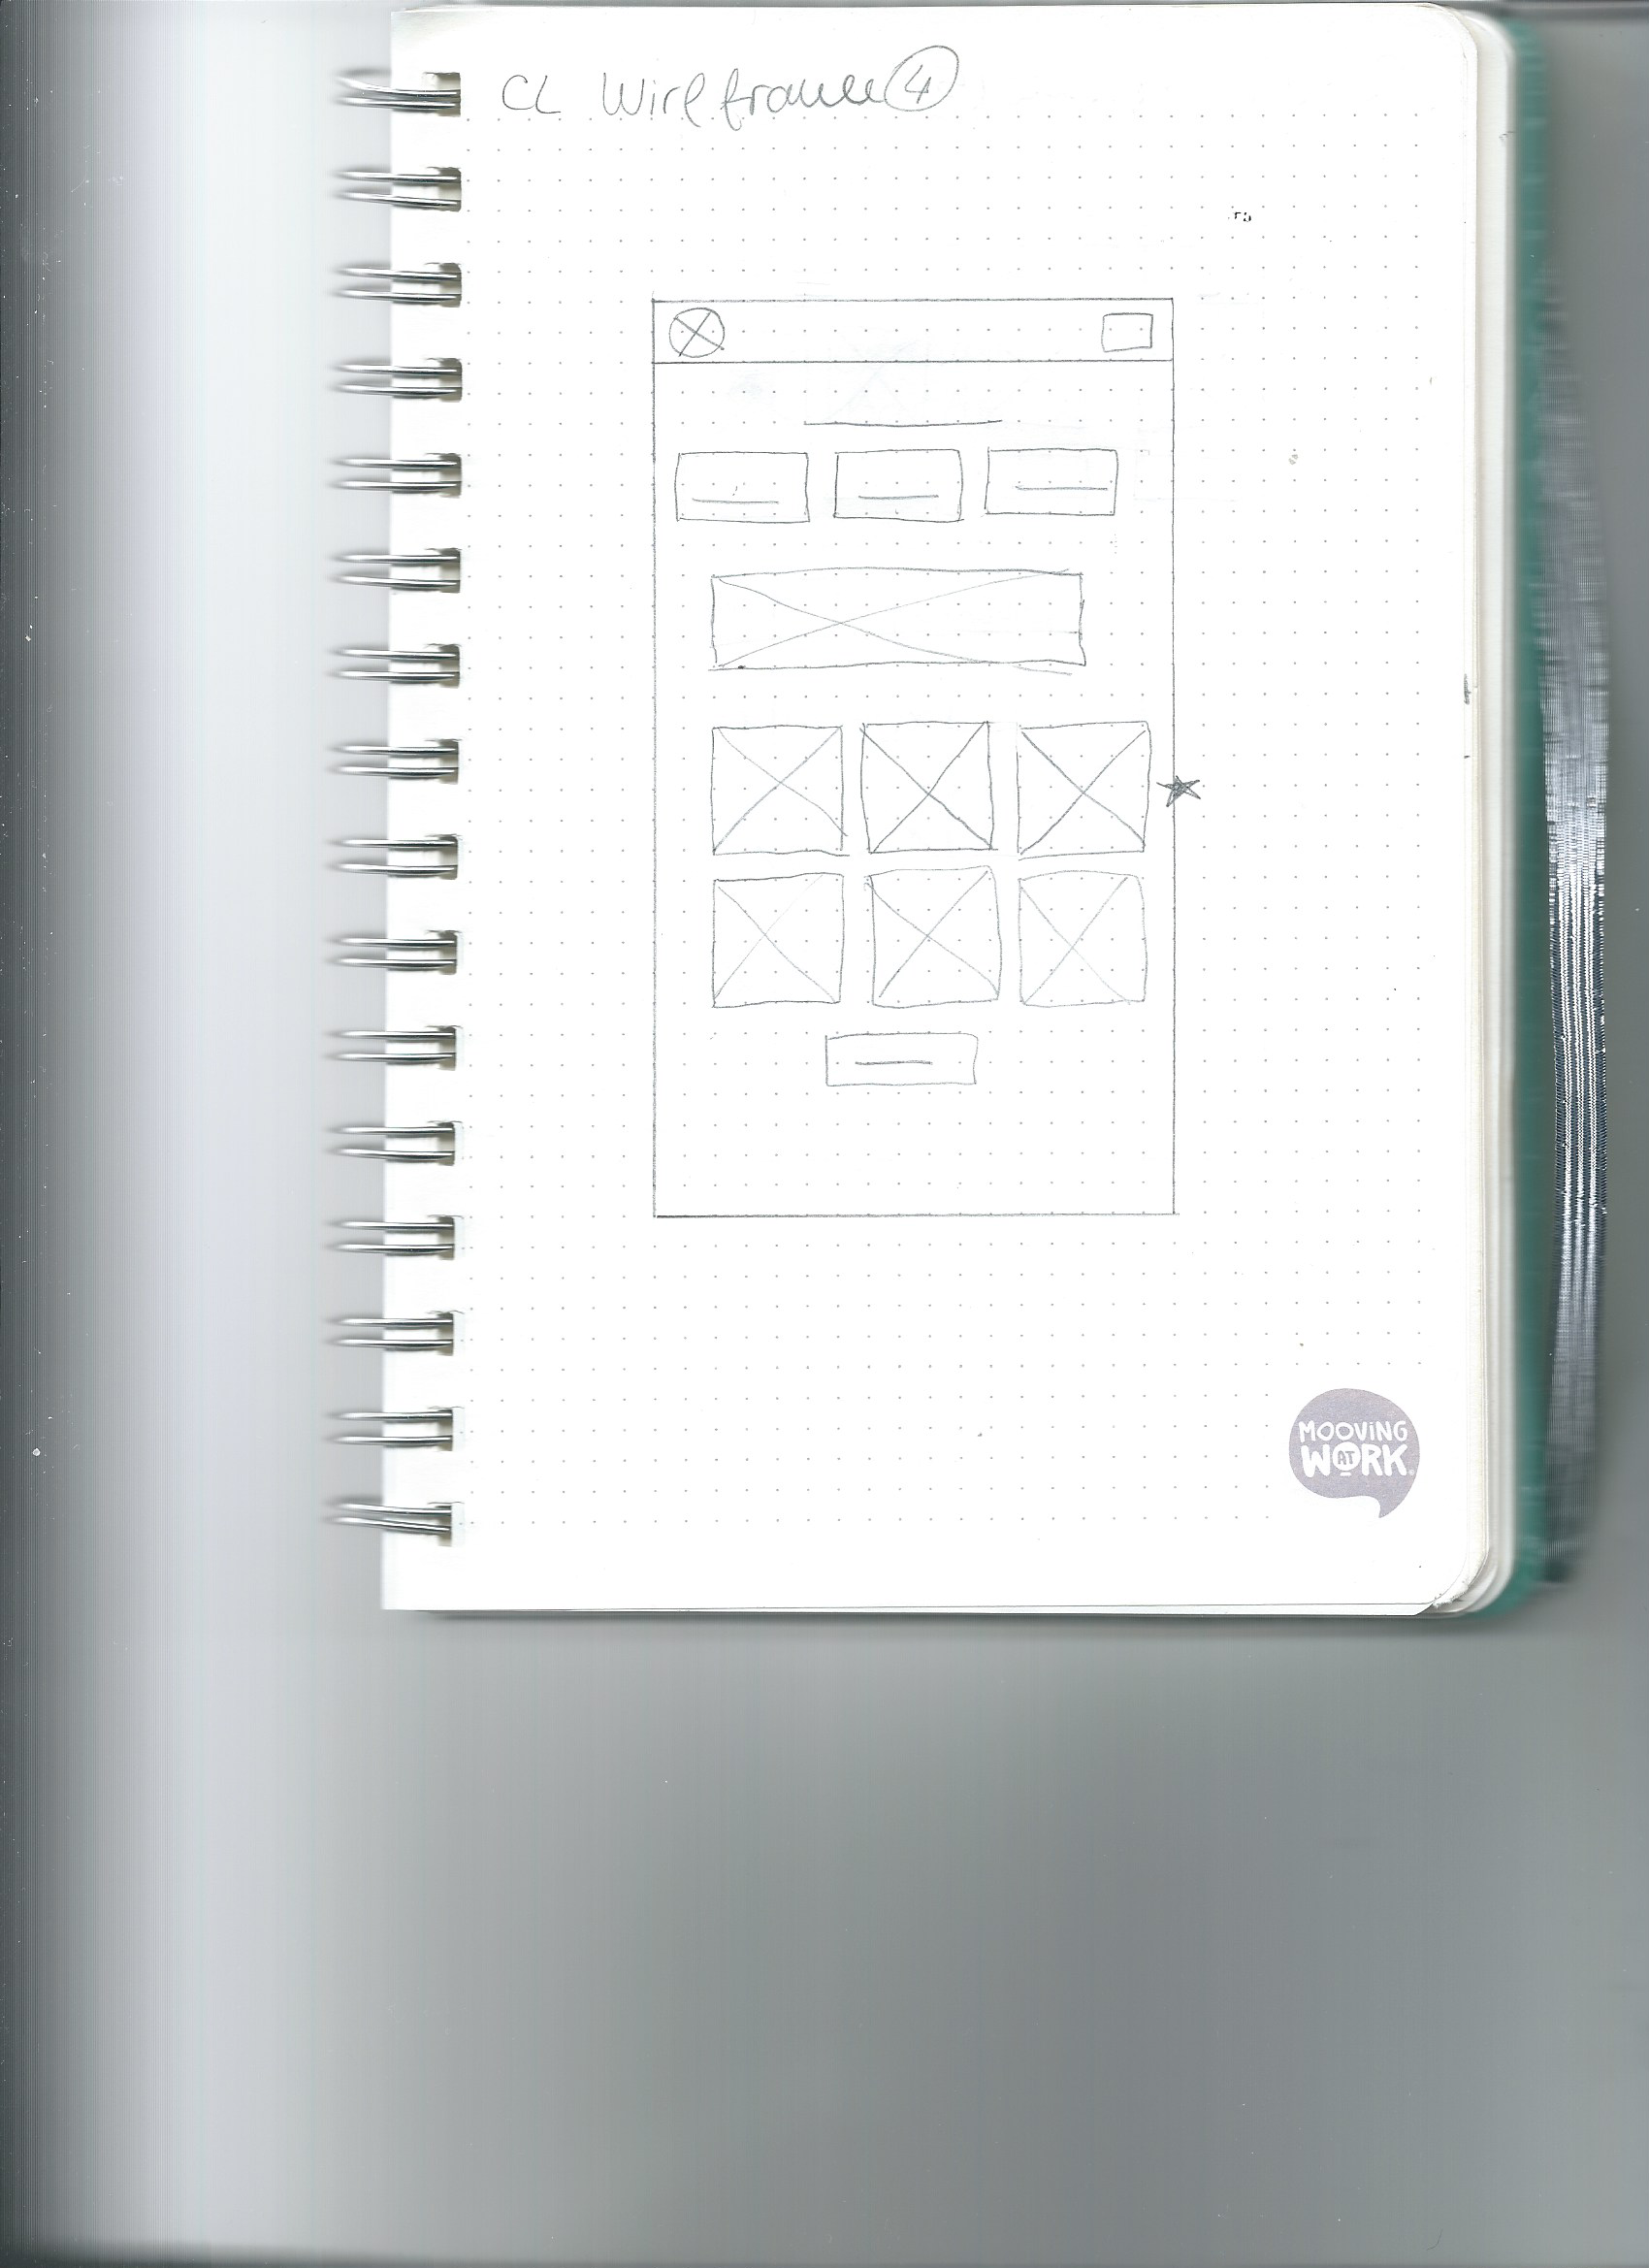 CL Wireframe 4
MOOVING
WORK
AT